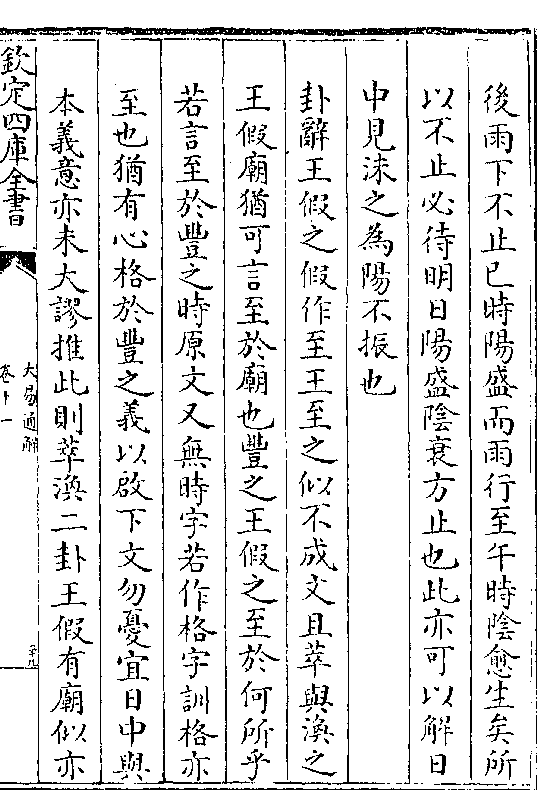 後雨下不止巳時陽盛而雨行至午時陰愈生矣所
以不止必待明日陽盛陰衰方止也此亦可以解日
中見沬之為陽不振也
卦辭王假之假作至王至之似不成文且萃與渙之
王假廟猶可言至於廟也豐之王假之至於何所乎
若言至於豐之時原文又無時字若作格字訓格亦
至也猶有心格於豐之義以啟下文勿憂宜日中與
本義意亦未大謬推此則萃渙二卦王假有廟似亦
欽定四庫全書
大易通解
卷十一